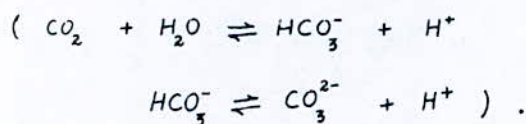 ( CO₂ + H₂O ⇌ HCO₃⁻ + H⁺
HCO₃⁻ ⇌ CO₃²⁻ + H⁺ ) .